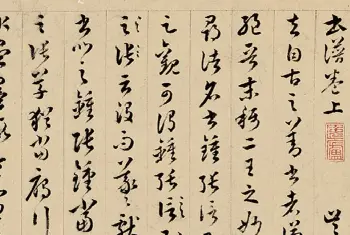 書譜卷上 吳
夫自古之善書者漢
絕晉末稱二王之妙
尋諸名書鍾張信
足觀可謂鍾張
云沒而羲獻
書比之鍾張鍾當
之張草猶當雁行